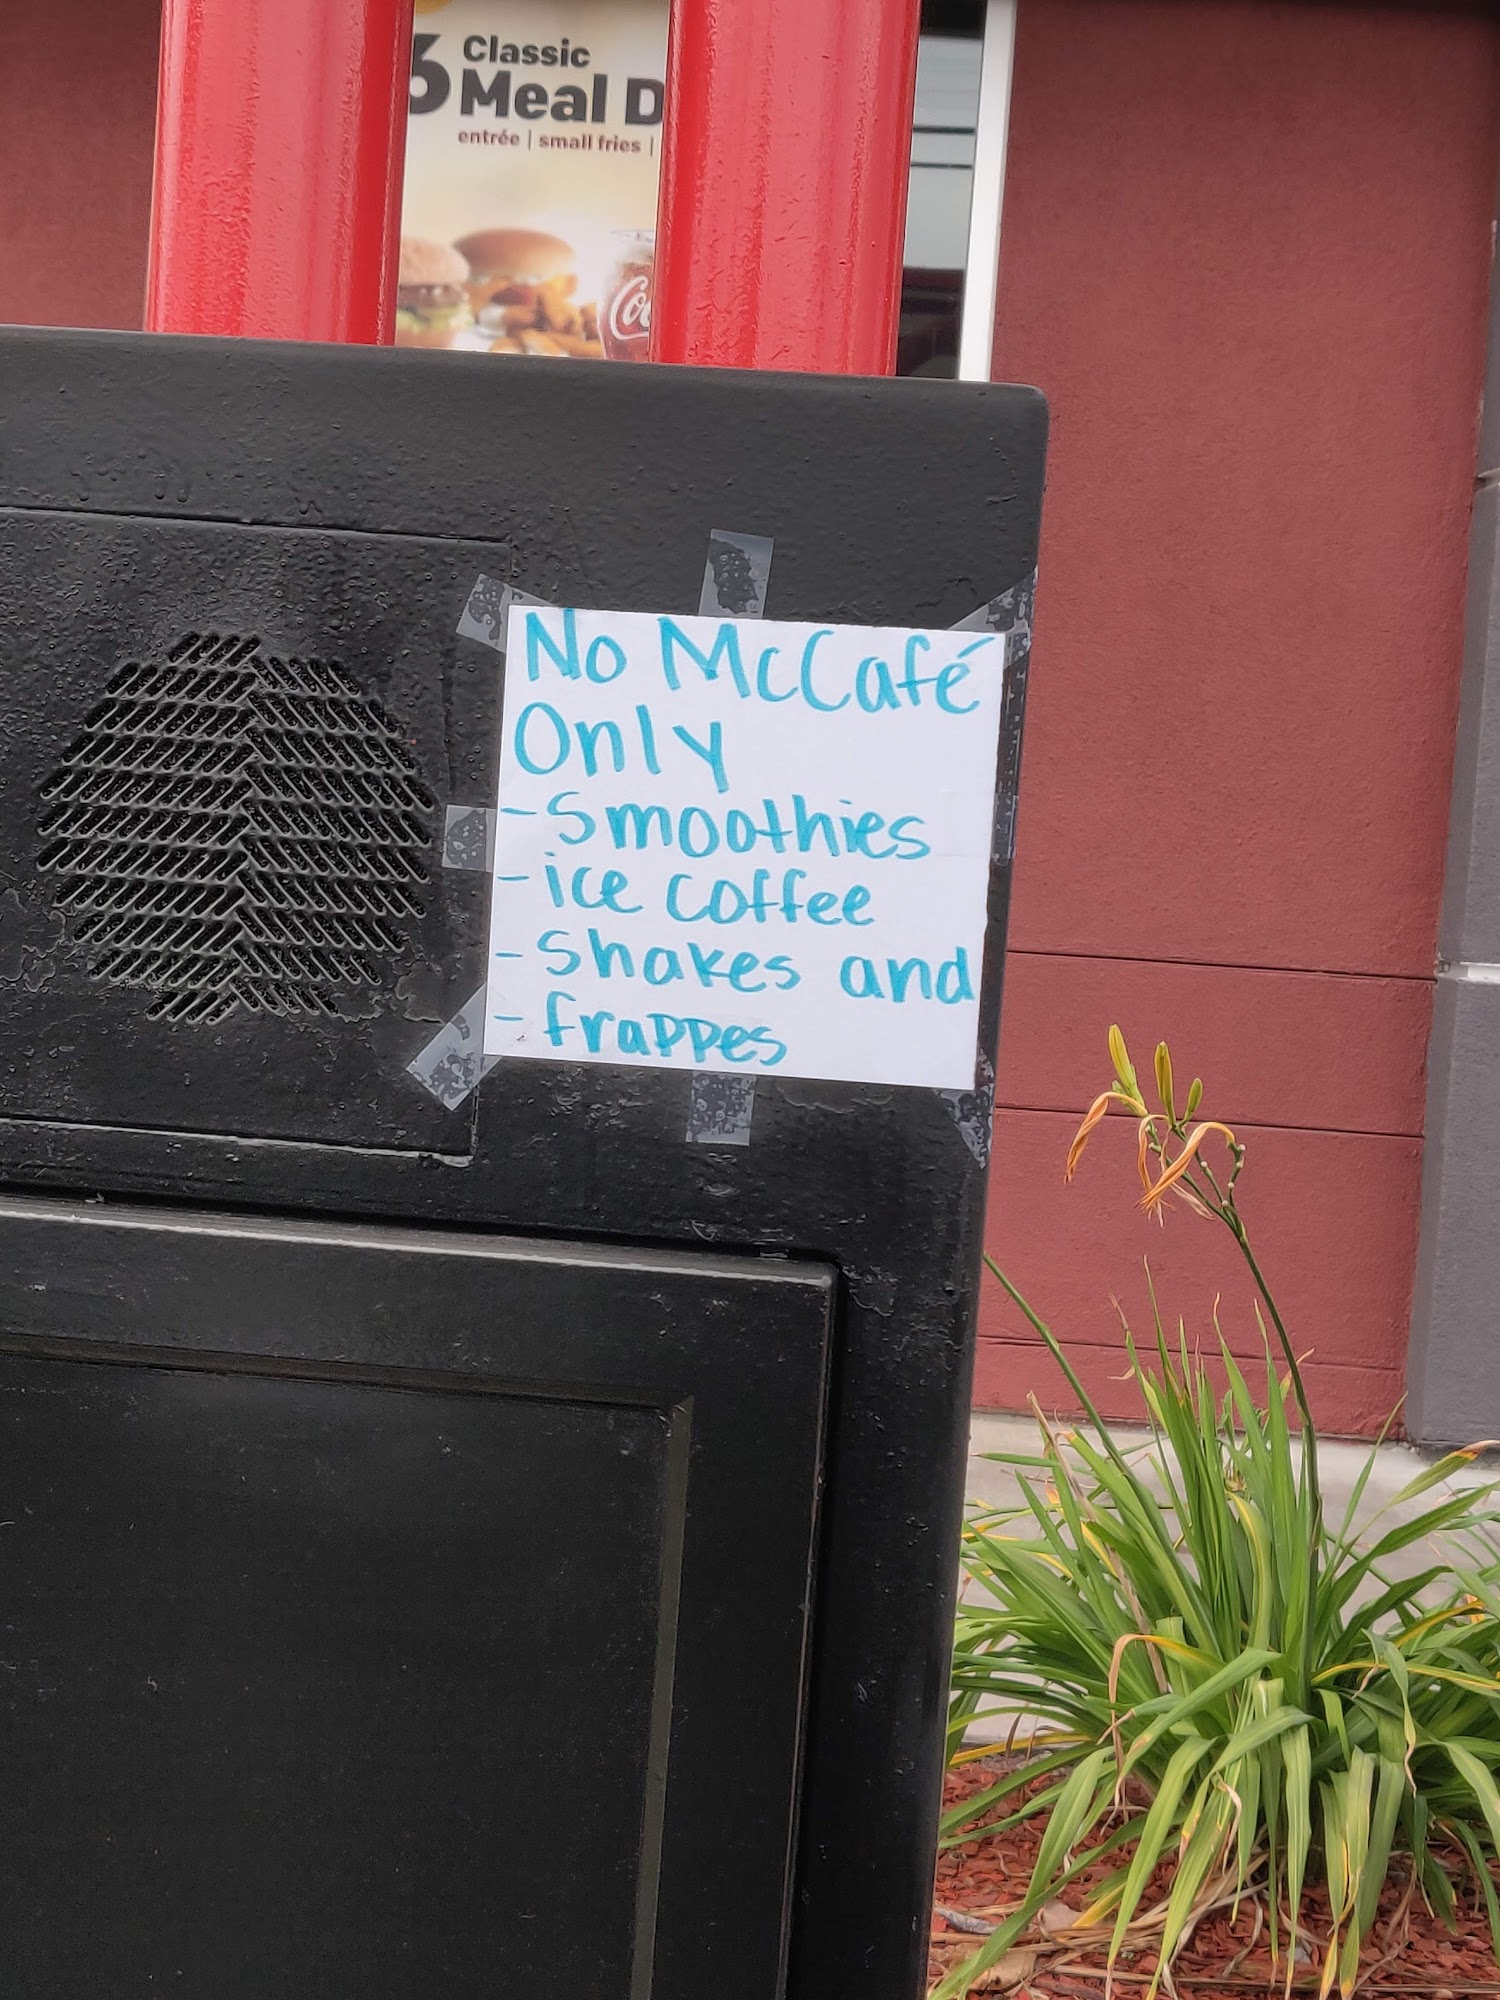 6 Classic
Meal D
entrée | small fries |
Co
No McCafé
Only
- Smoothies
- ice coffee
- Shakes and
- frappes